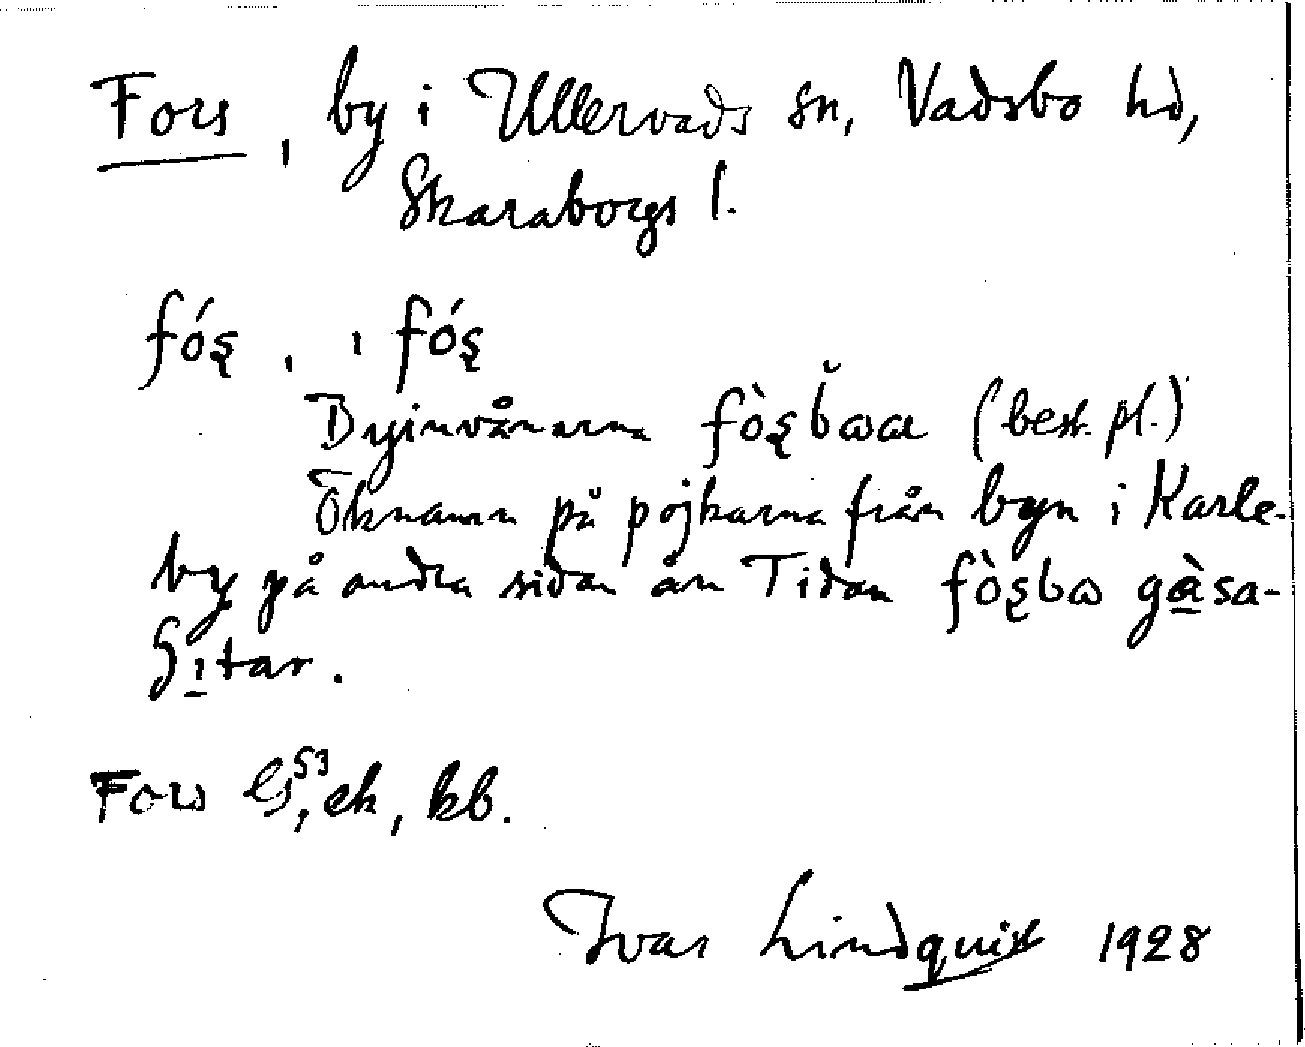 Fors, by i Ullervads sn, Vadsbo hd,
Skaraborgs l.
fóʂ, ı fóʂ
Byinvånarna fòʂbɷɑ (best. pl.)
Öknamn på pojkarna från byn i Karle-
by på andra sidan ån Tidan fòʂbɷ gàsa-
ı̱tar.
Fors GS3, ek, kb.
Ivar Lindquist 1928